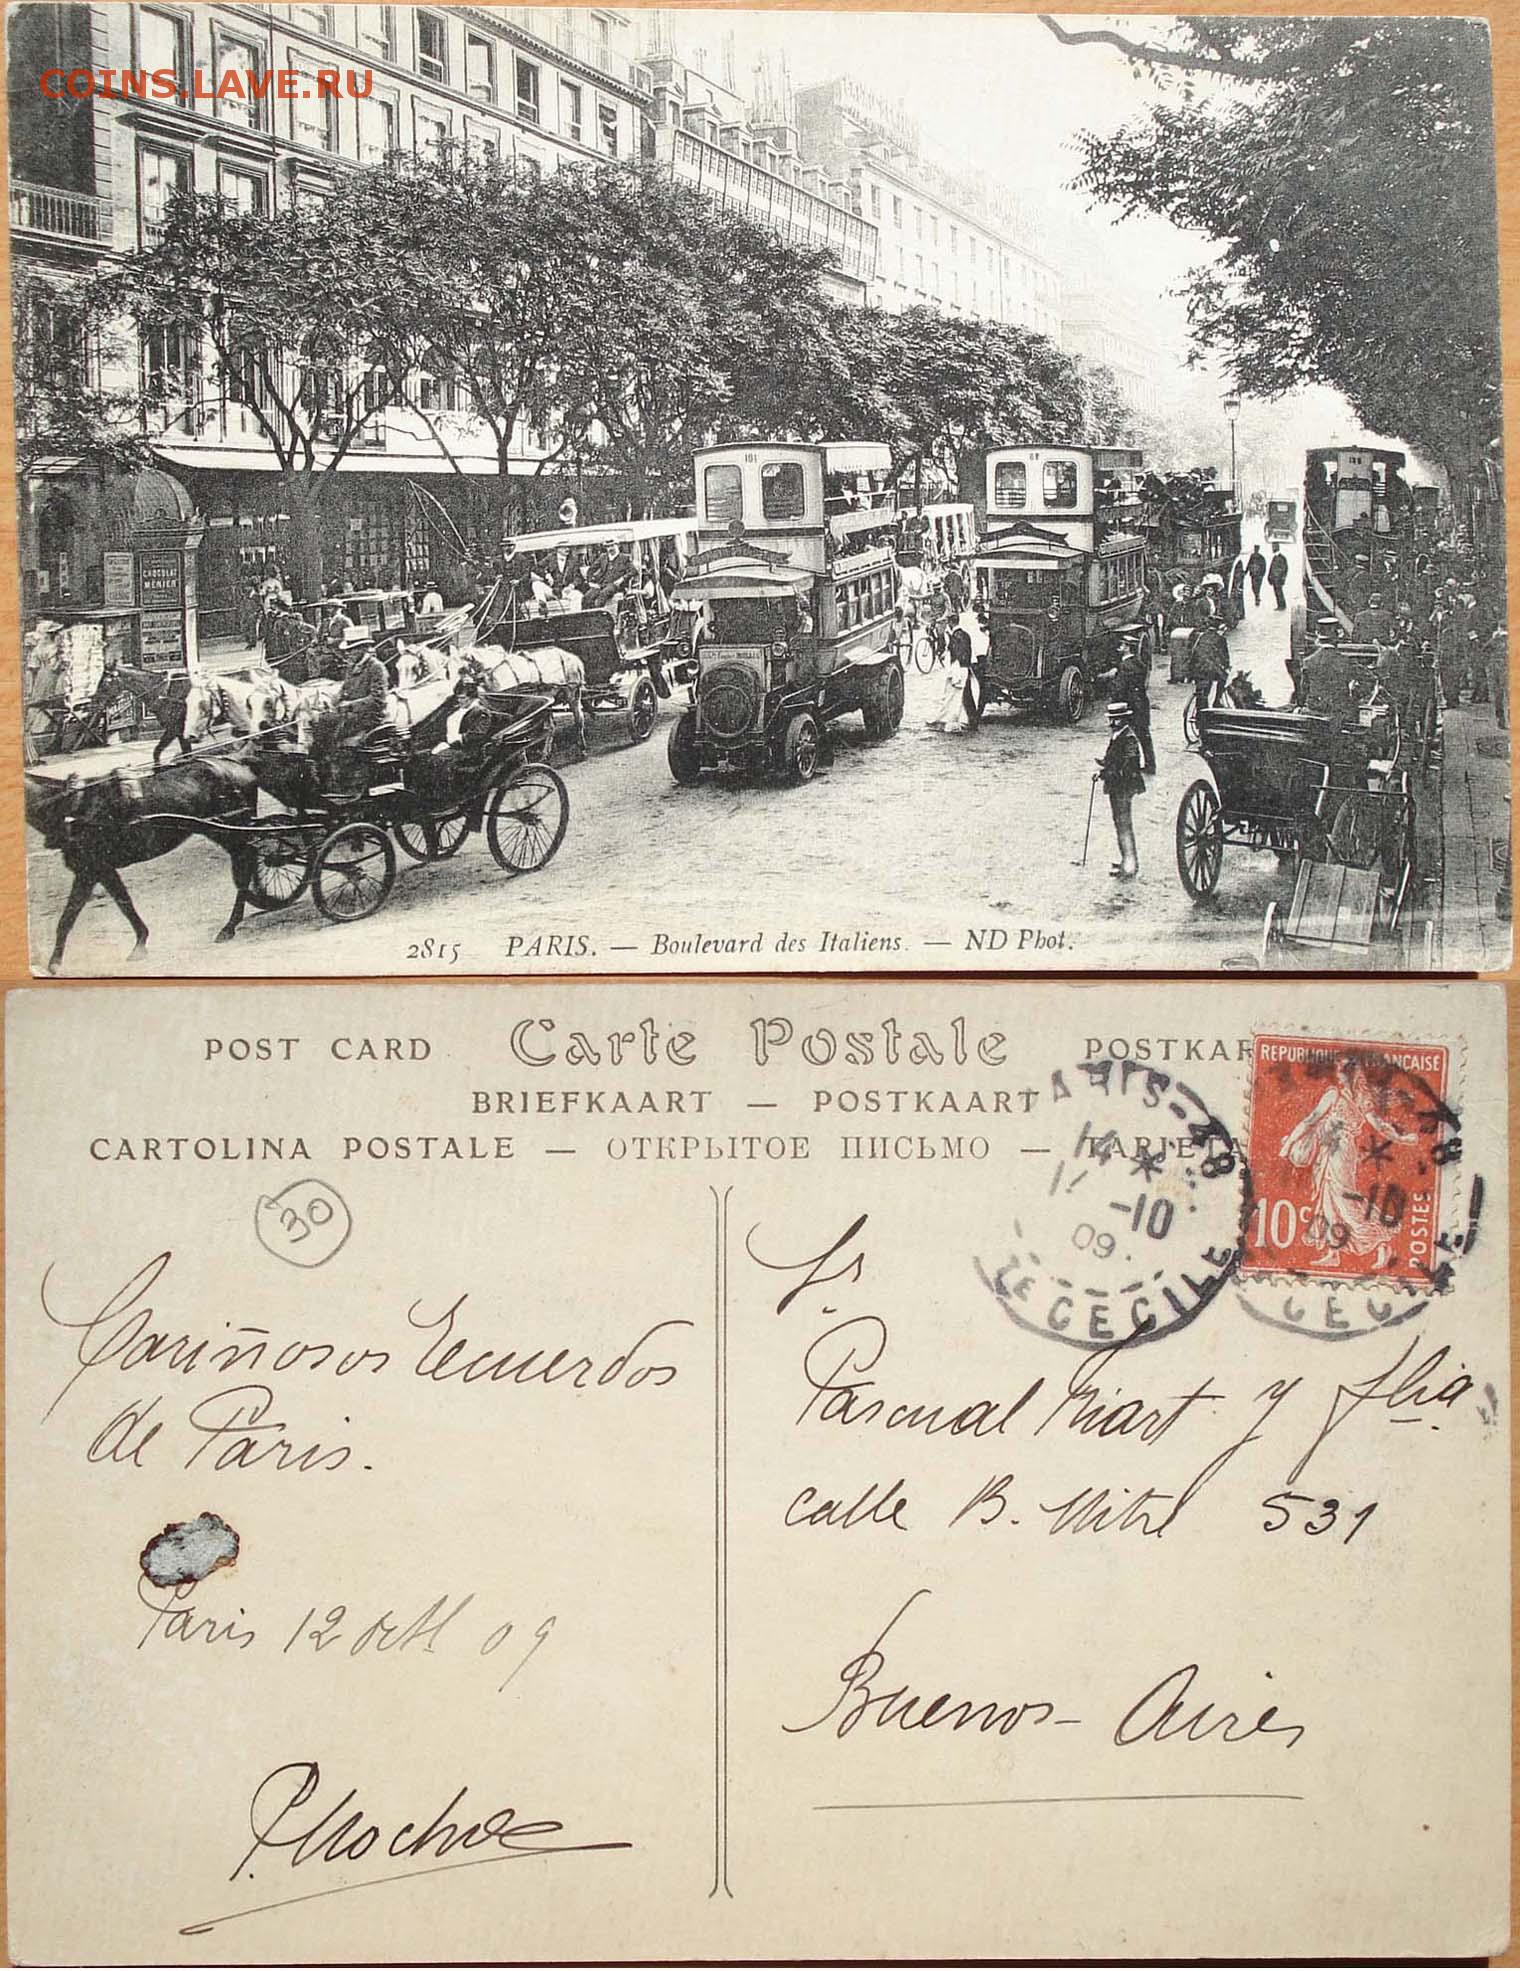 COINS.LAVE.RU
101
CHOCOLAT
MENIER
2815 PARIS. — Boulevard des Italiens. — ND Phot.
POST CARD Carte Postale POSTKAR
BRIEFKAART — POSTKAART
CARTOLINA POSTALE — ОТКРЫТОЕ ПИСЬМО — TARJETA
REPUBLIQUE FRANÇAISE
10c
POSTES
PARIS-48
14 *
-10
09
CECILE
30
Cariñosos Recuerdos
de Paris.
Paris 12 octl 09
Sr
Pascual Kiart y flia.
calle B. Mitre 531
Buenos-Aires